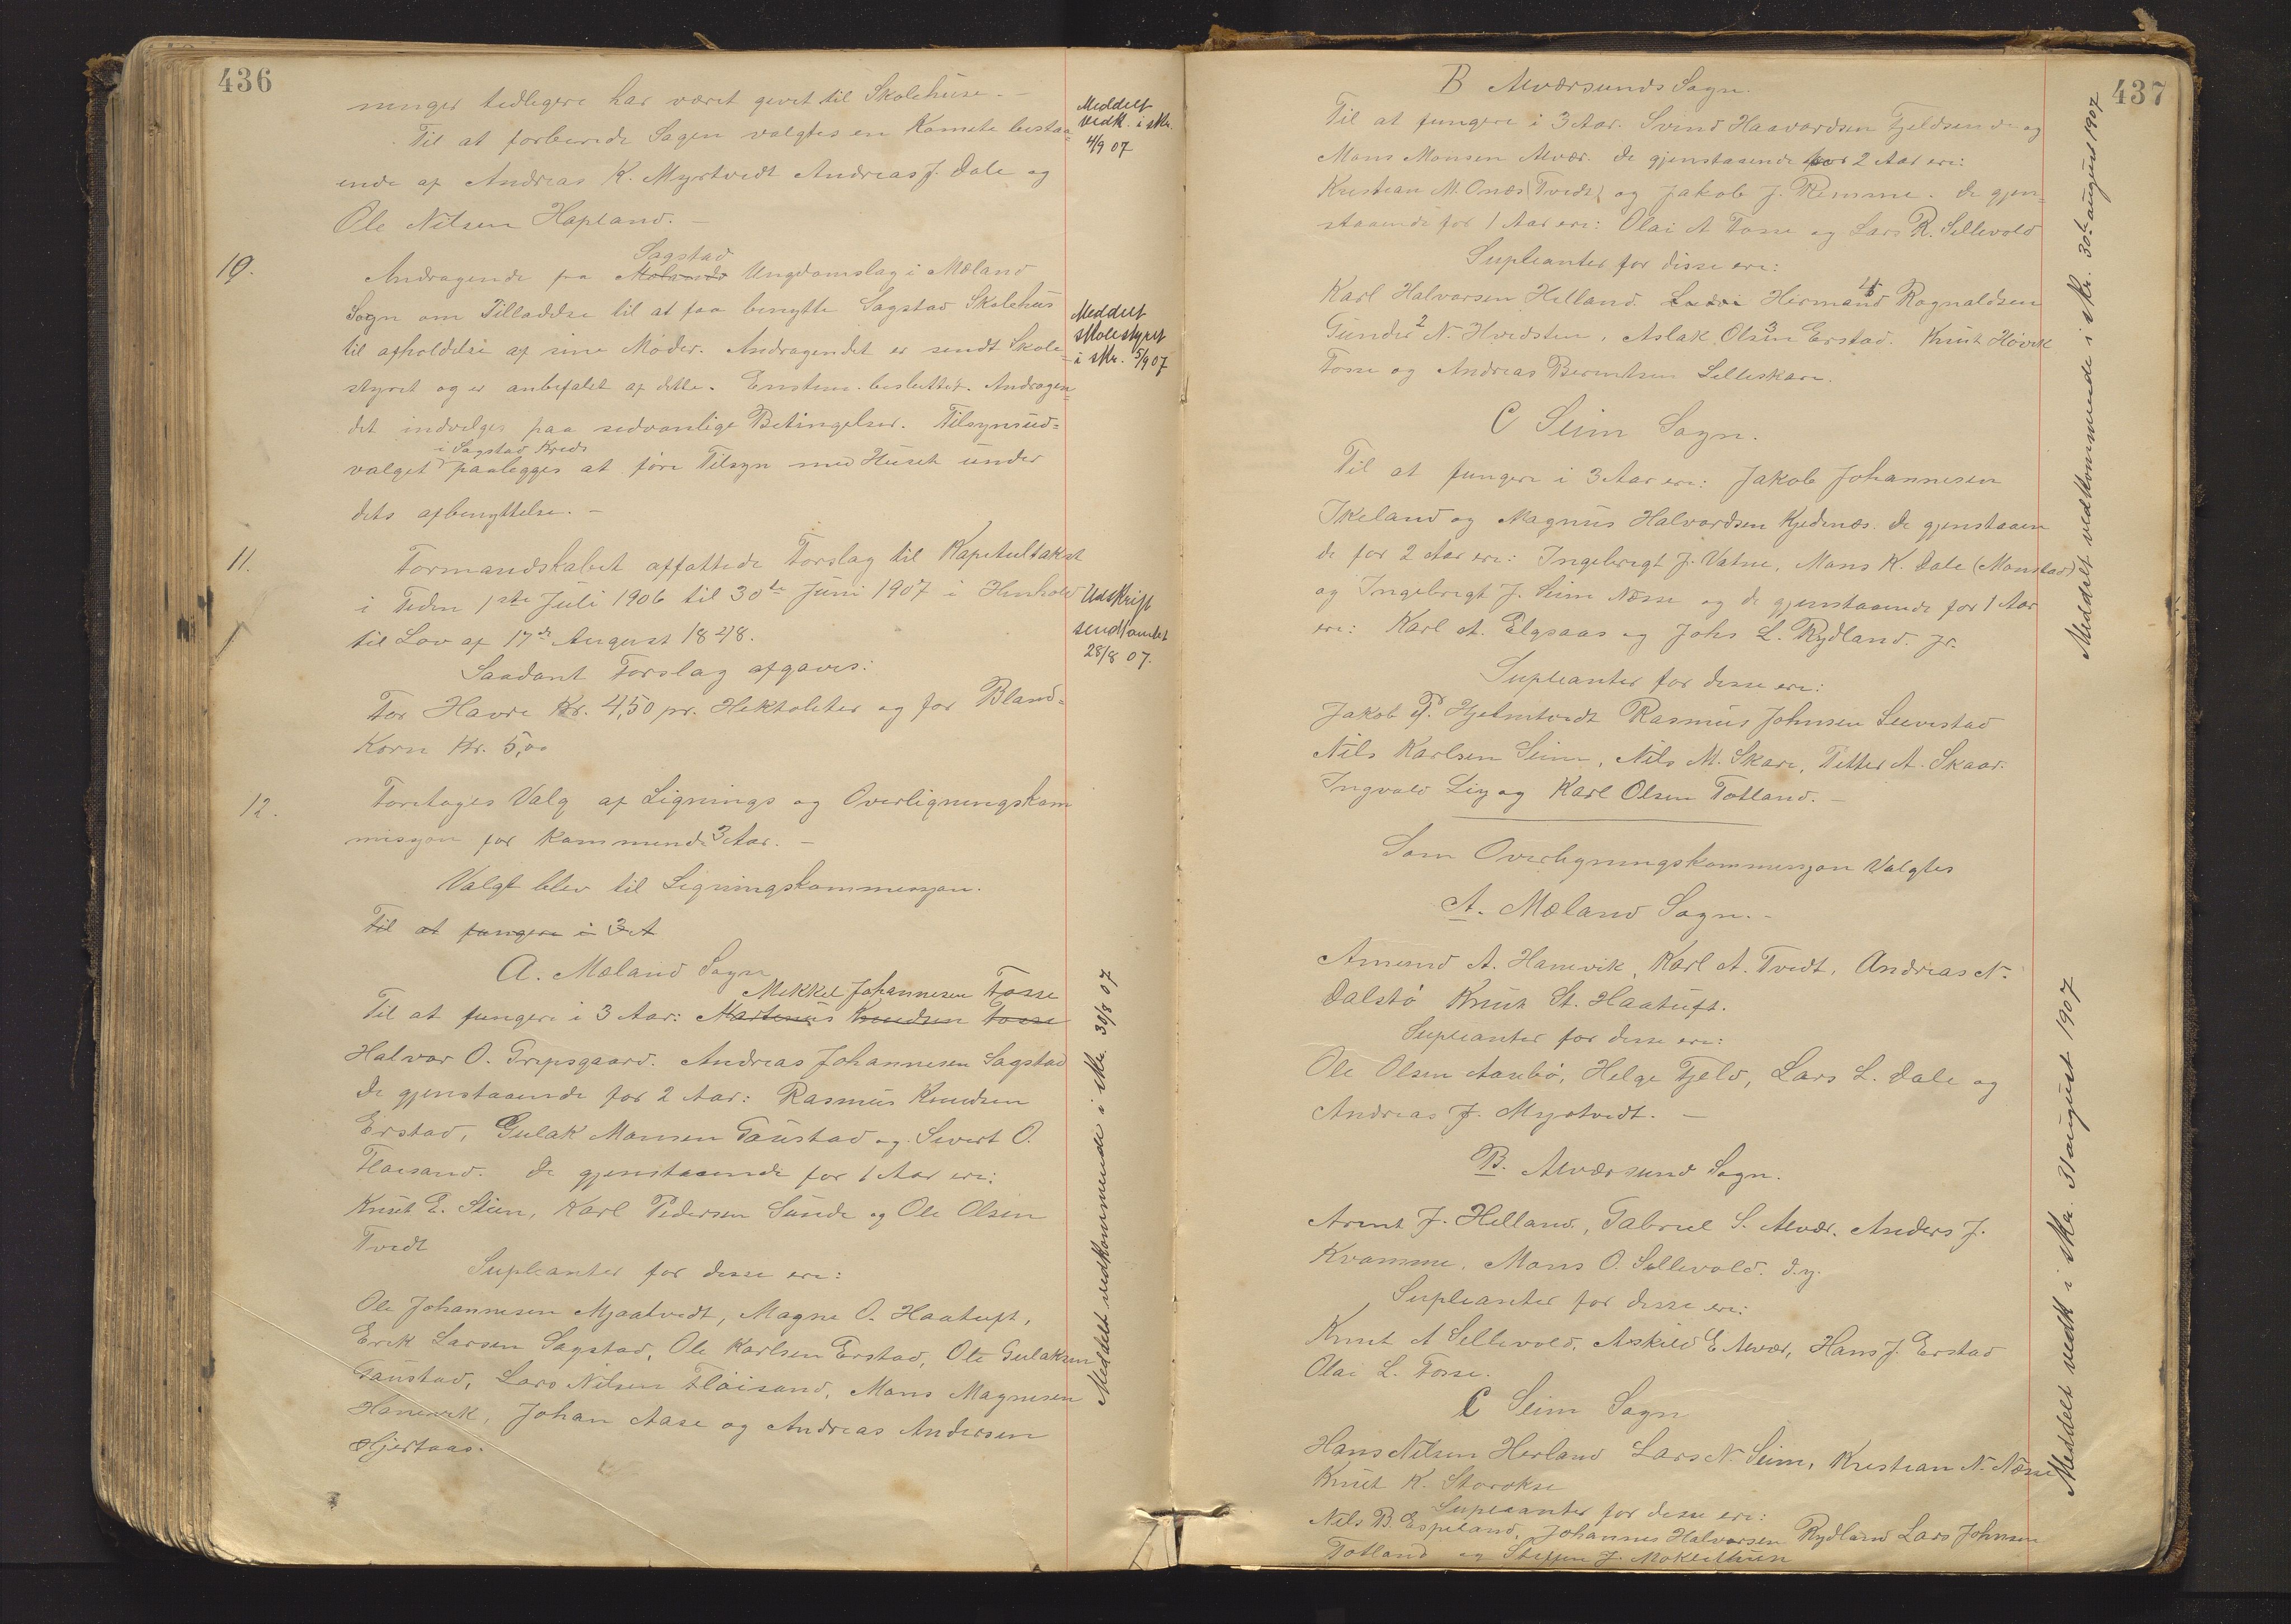 436
ninger tidligere har været givet til Skolehuse. -
Til at forberede Sagen valgtes en Komite bestaa=
ende af Andreas K. Myrtvedt Andreas J. Dale og
Ole Nilsen Hopland. -
Meddelt
vedk. i skr.
4/9 07
10.
Sagstad
Andragende fra Mælands Ungdomslag i Mæland
Sogn om Tilladelse til at faa benytte Sagstad Skolehus
til afholdelse af sine Møder. Andragendet er sendt Skole=
styret og er anbefalet af dette. Enstem. besluttet. Andragen=
det indvilges paa sedvanlige Betingelser. Tilsynsud=
i Sagstad Kreds
valget paalegges at føre Tilsyn med Huset under
dets afbenyttelse. -
Meddelt
skolestyret
i skr. 5/9 07
11.
Formandskabet affattede Forslag til Kapitultakst
i Tiden 1ste Juli 1906 til 30te Juni 1907 i Henhold
til Lov af 17de August 1848.
Saadant Forslag afgaves:
For Havre Kr. 4,50 pr. Hektoliter og for Bland=
Korn Kr. 5,00
Udskrift
sendt amtet
28/8 07.
12.
Foretoges Valg af Lignings og Overligningskom
misjon for kommende 3 Aar. -
Valgt blev til Ligningskommisjon.
Til at fungere i 3 A
A. Mæland Sogn
Mikkel Johannesen Fosse
Til at fungere i 3 Aar: Martinus Knudsen Fosse
Halvor O. Gripsgaard. Andreas Johannesen Sagstad
De gjenstaaende for 2 Aar: Rasmus Knudsen
Erstad, Gulak Monsen Taustad og Sivert O.
Floisand. De gjenstaaende for 1 Aar ere:
Knut E. Stien, Karl Pedersen Sunde og Ole Olsen
Tvedt
Supleanter for disse ere:
Ole Johannesen Mjaatvedt, Magne O. Haatuft,
Erik Larsen Sagstad, Ole Karlsen Erstad, Ole Gulaksen
Taustad, Lars Nilsen Fløisand, Mons Magnesen
Hanevik, Johan Aase og Andreas Andersen
Hjertaas.
Meddelt vedkommende i skr. 30/8 07
437
B Alværsunds Sogn.
Til at fungere i 3 Aar. Svend Haavardsen Fjeldsende og
Mons Monsen Alvær. De gjenstaaende for 2 Aar ere:
Kristian M. Onæs (Tvedt) og Jakob J. Remme. De gjen=
staaende for 1 Aar ere: Olai A Fosse og Lars R. Sellevold
Supleanter for disse ere:
Karl Halvorsen Helland. Hermand Rognaldsen
Gunder N. Hvidsten, Aslak Olsen Erstad. Knut Høvik
Fosse og Andreas Berentsen Litleskare.
C Seim Sogn.
Til at fungere i 3 Aar ere: Jakob Johannesen
Ikeland og Magnus Halvordsen Kjedenæs. De gjenstaaen
de for 2 Aar ere: Ingebrigt J. Vatne, Mons K. Dale (Monstad)
og Ingebrigt J. Seim Næsse og de gjenstaaende for 1 Aar
ere: Karl A. Elgsaas og Johs L. Rydland. jr.
Supleanter for disse ere:
Jakob P. Hjelmtvedt Rasmus Johnsen Leivestad
Nils Karlsen Seim, Nils M. Skare, Petter A. Skaar.
Ingvald Lig og Karl Olsen Totland. -
Som Overligningskommisjon Valgtes
A. Mæland Sogn. -
Amund A. Hanevik, Karl A. Tvedt, Andreas N.
Dalstø Knut St. Haatuft.
Supleanter for disse ere:
Ole Olsen Aasebø, Helge Fjeld, Lars L. Dale og
Andreas J. Myrtvedt. -
B. Alværsund Sogn.
Arent J. Helland, Gabriel S. Alvær. Anders J.
Kvamme. Mons O. Sellevold. d.y.
Supleanter for disse ere:
Knut A Sellevold, Askild E Alvær, Hans J. Erstad
Olai L. Fosse.
C Seim Sogn
Hans Nilsen Herland Lars N. Seim, Kristian N. Næsse
Knut K. Storokse
Supleanter for disse ere:
Nils B. Espeland, Johannes Halvorsen Rydland Lars Johnsen
Totland og Steffen J. Moklethun
Meddelt vedkommende i skr. 30te august 1907
Meddelt vedk i skr. 31 august 1907